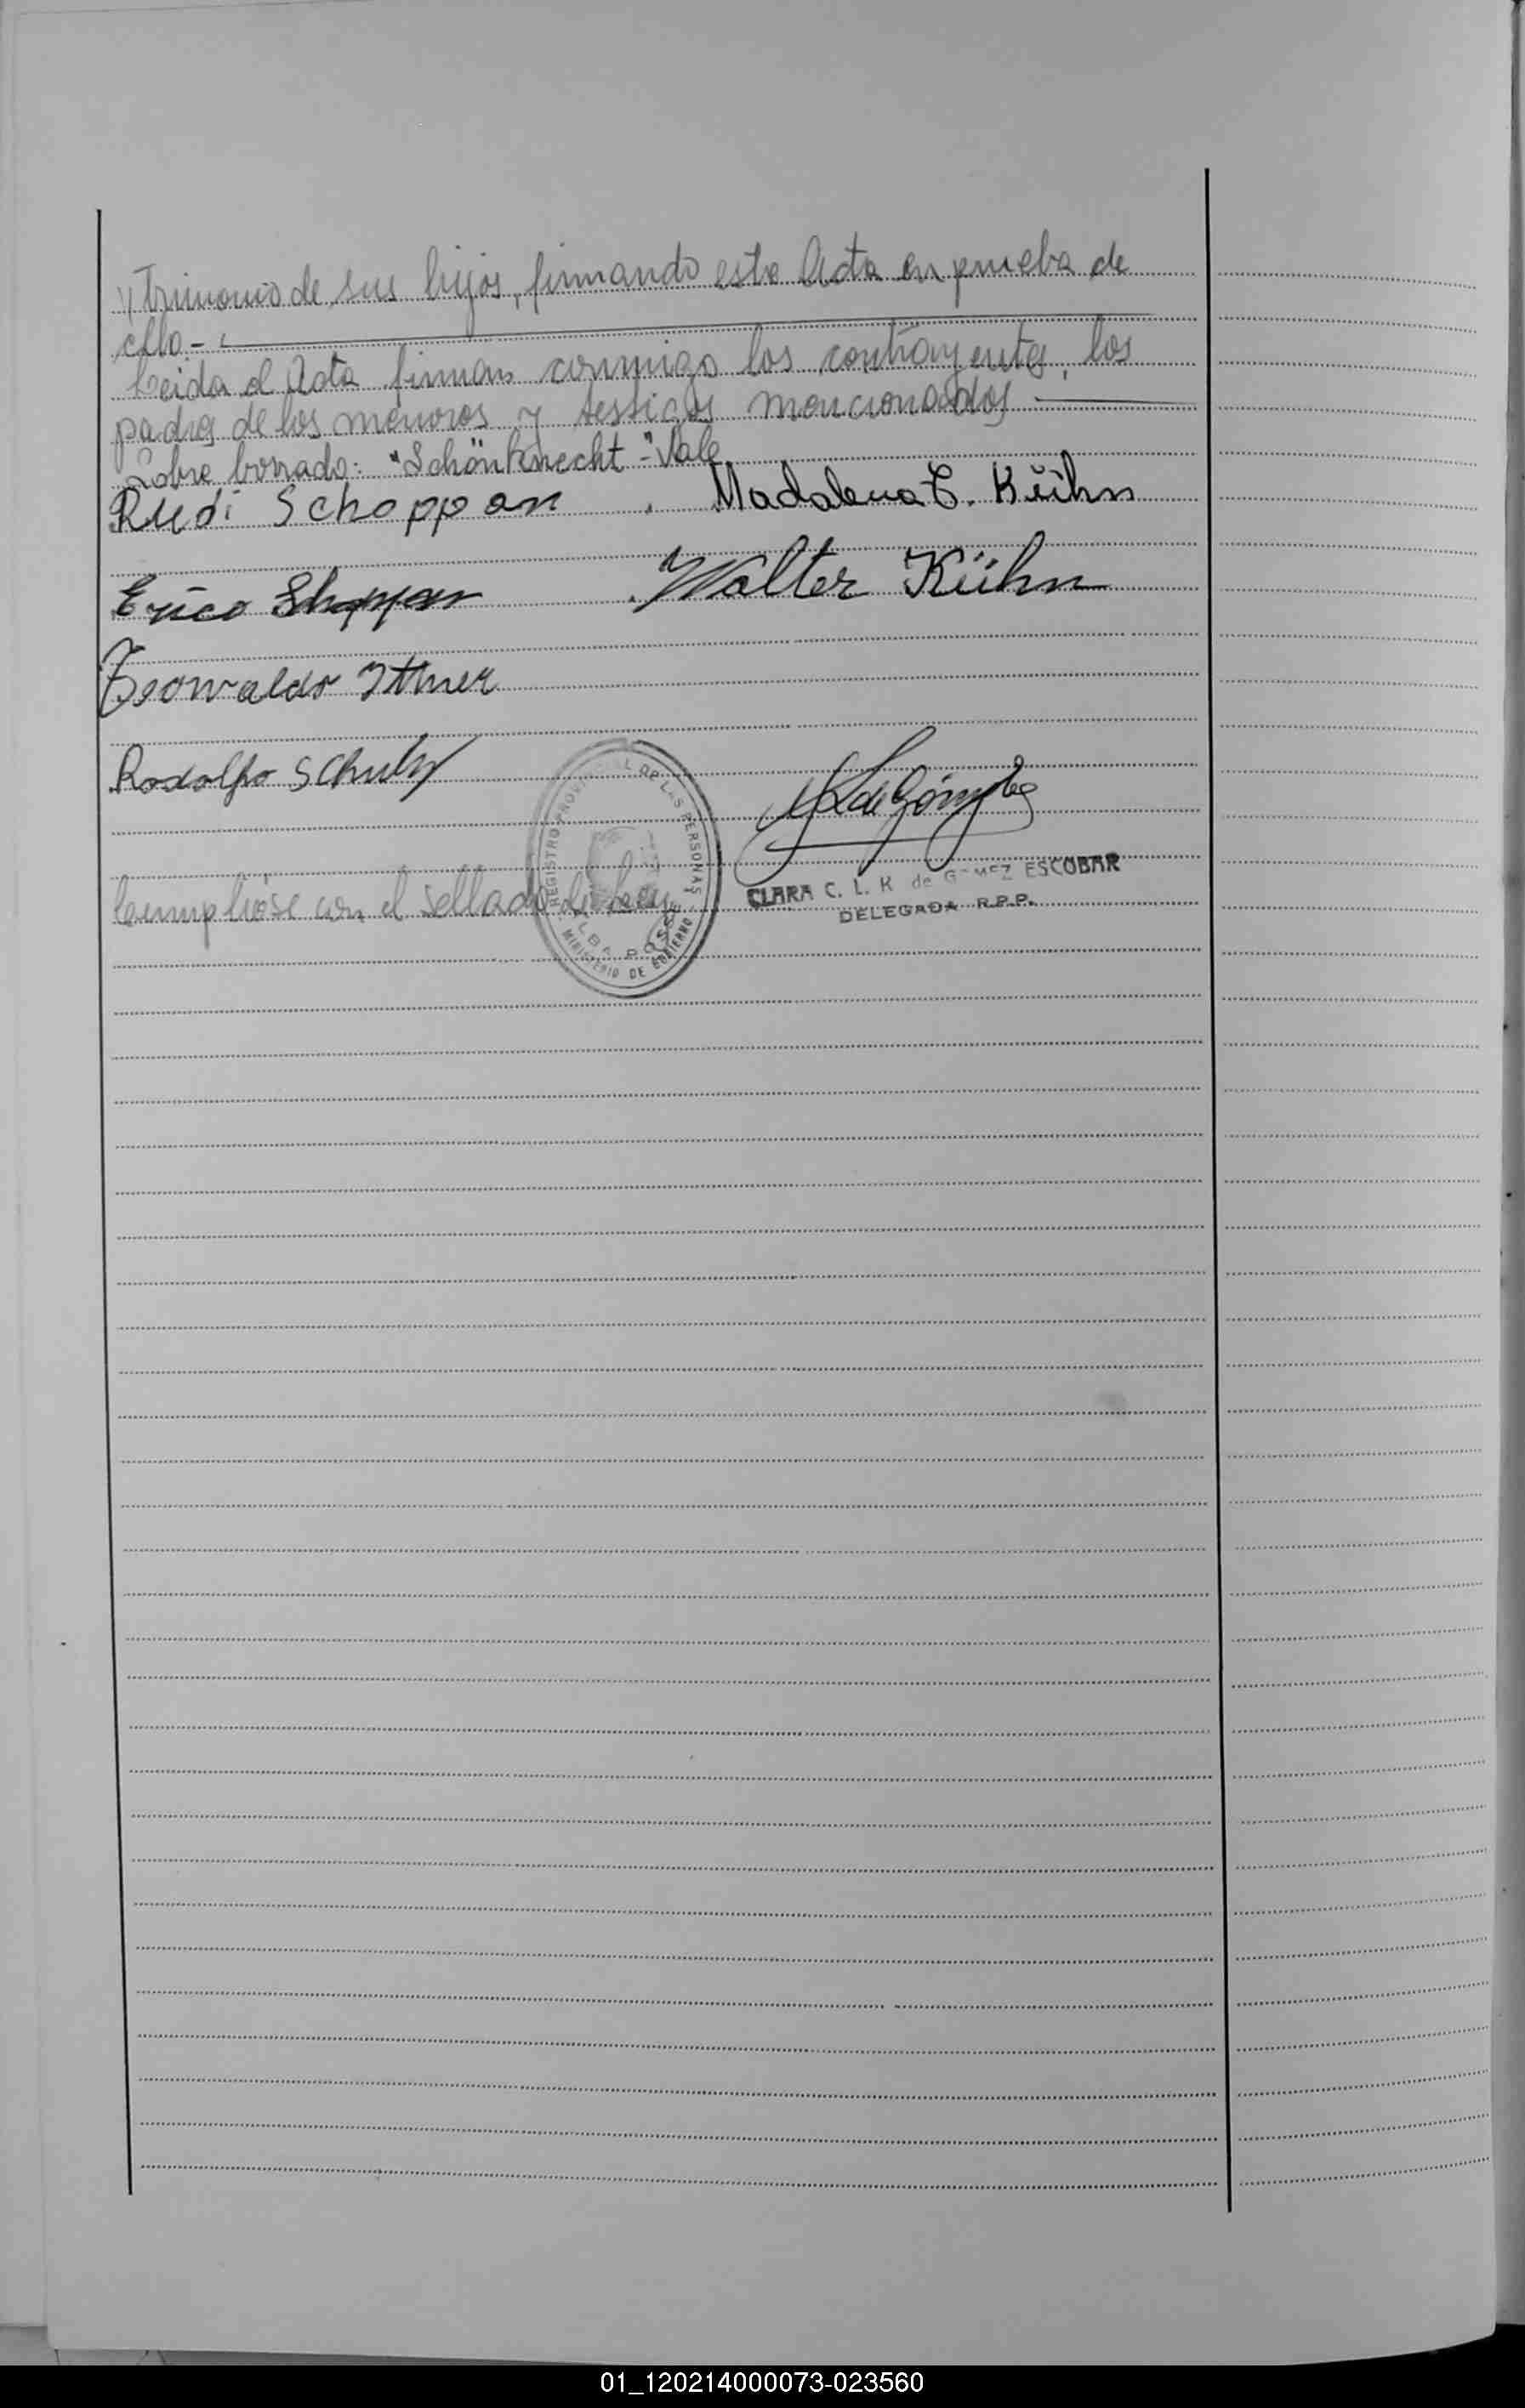 trimonio de sus hijos, firmando esta Acta en prueba de
ello.-
Leida el Acta firman conmigo los contrayentes, los
padres de los menores y testigos mencionados
Sobre borrado: "Schönknecht"- Vale
Rudi Schoppan . Madalena C. Kühn
Erico Shoppan . Walter Kühn
Teowaldo Ittner
Rodolfo Schulz
REGISTRO PROVINCIAL DE LAS PERSONAS
ALBA POSSE
MINISTERIO DE GOBIERNO
CLARA C. L. K de GOMEZ ESCOBAR
DELEGADA R.P.P.
Cumplióse con el sellado de Ley
01_120214000073-023560